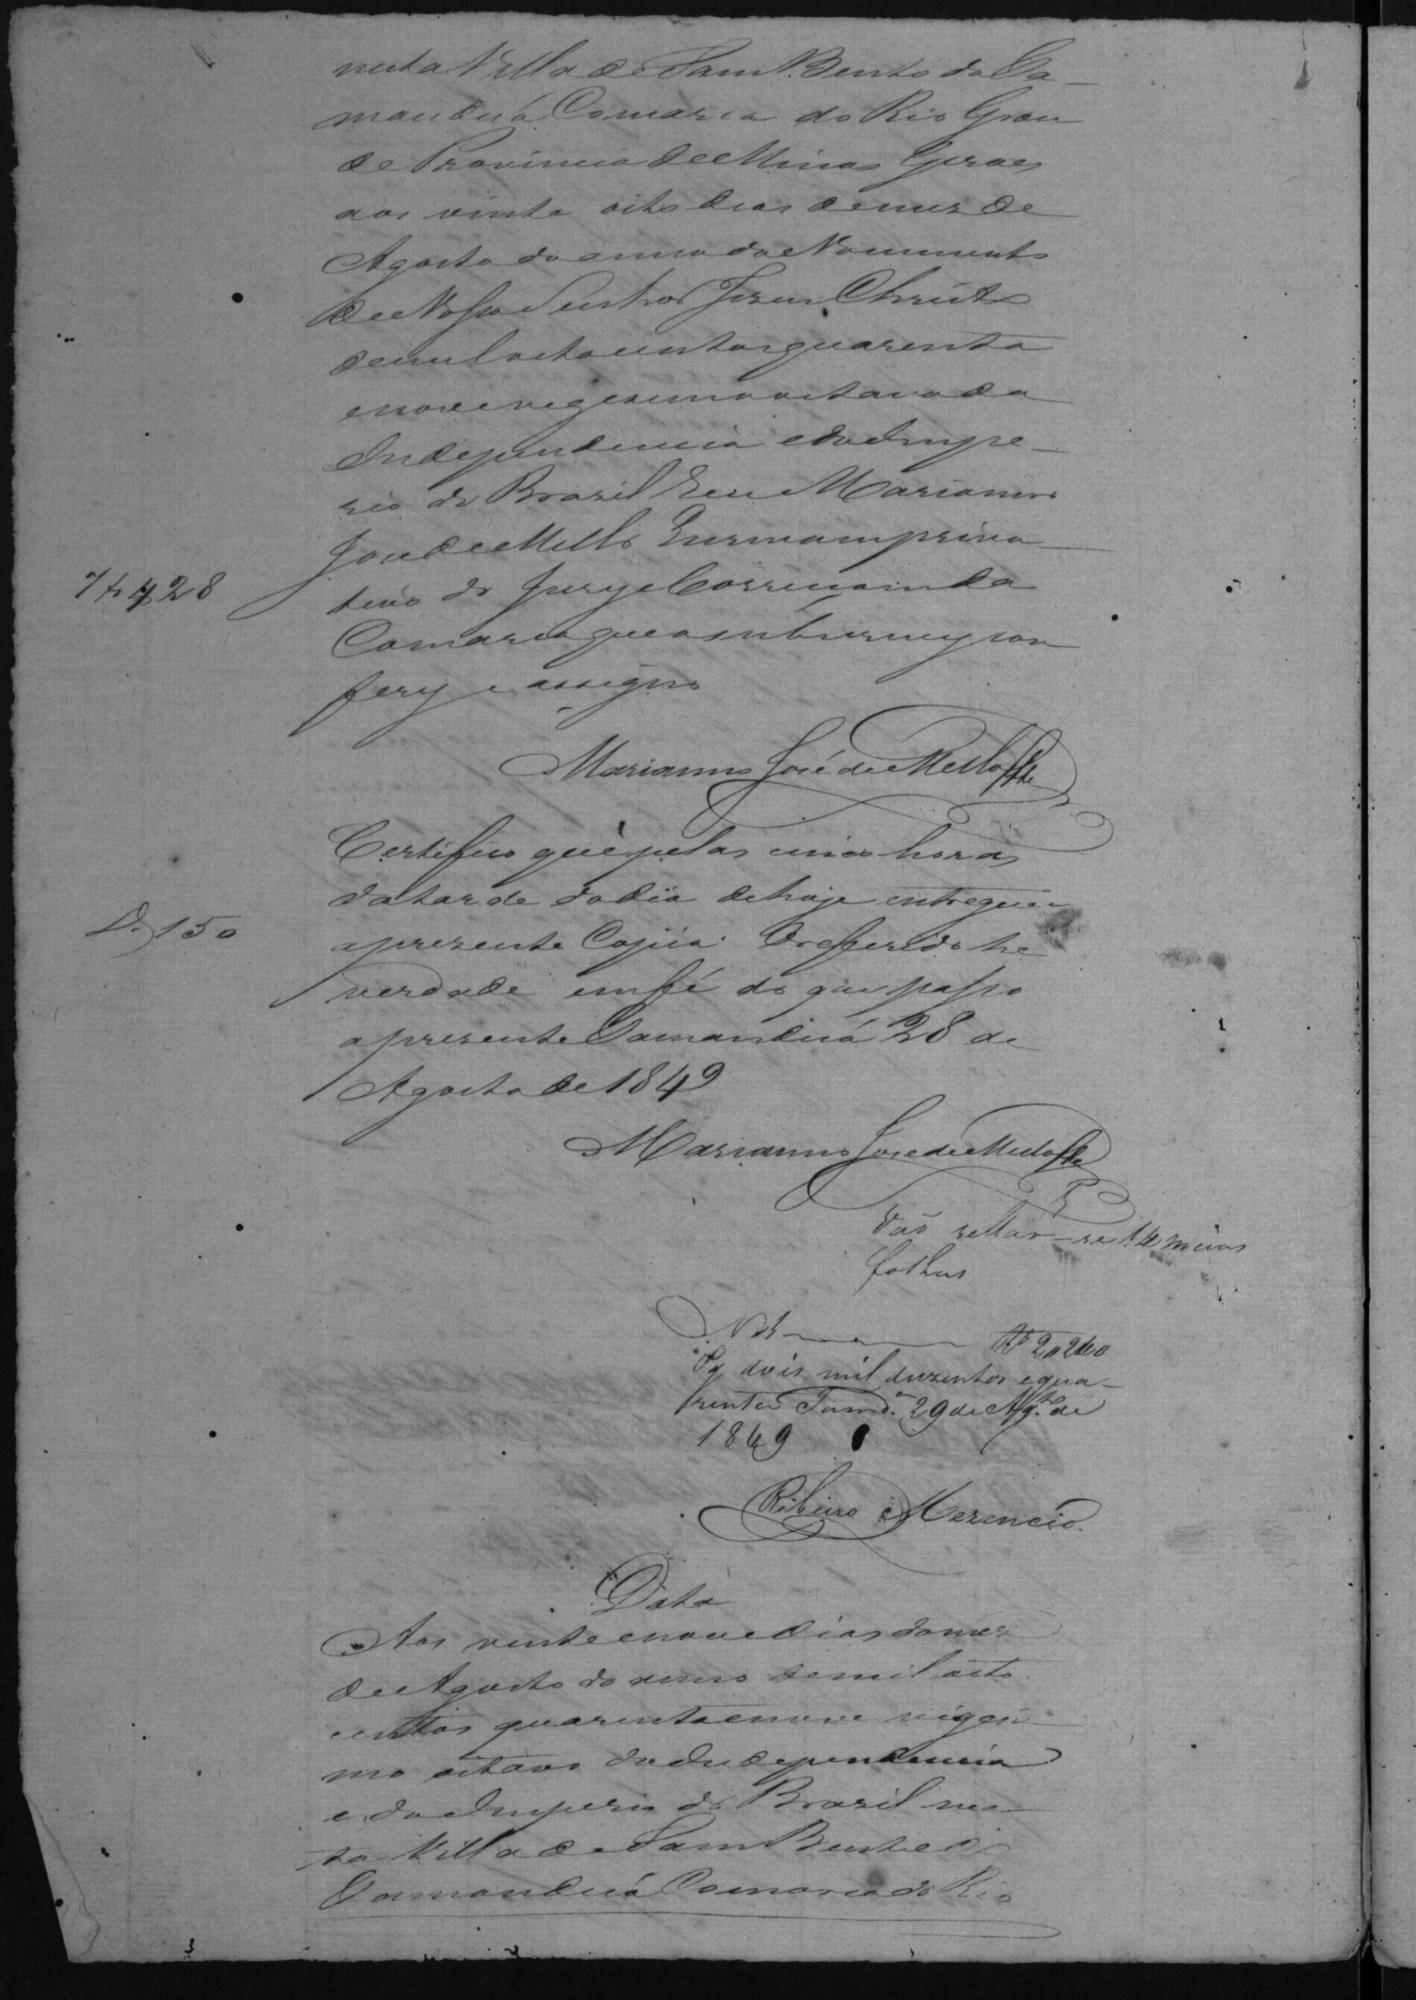 nesta Villa de Sam Bento do Ta-
manduá Comarca do Rio Gran
de Provincia de Minas Geraes
aos vinte oito dias do mes de
Agosto do anno do Nascimento
de Nosso Senhor Jesus Christo
de mil oito centos quarenta
e nove vigesimo oitavo da
Independencia e do Impe-
rio do Brazil Eu Marianno
José de Mello Escrivam priva-
tivo do Jury e Correiçam da
Comarca que a sub escrevy con
fery e assigno
7#428
Marianno José de Mello
Certifico que pelas cinco horas
da tarde do dia de hoje entreguei
D. 150
a presente Copia. O referido he
verdade em fé do que passo
a presente Tamanduá 28 de
Agosto de 1849
Marianno José de Mello
Vaó sellar-se 14 meias
folhas
N. 1 Rs 2#240
Pg dois mil duzentos e qua-
renta Tamd.ª 29 de Agto de
1849
Ribeiro Merencio
Data
Aos vinte e nove dias do mes
de Agosto do anno de mil oito
centos quarenta e nove vigesi-
mo oitavo da Independencia
e do Imperio do Brazil nes-
ta Villa de Sam Bento do
Tamanduá Comarca do Rio